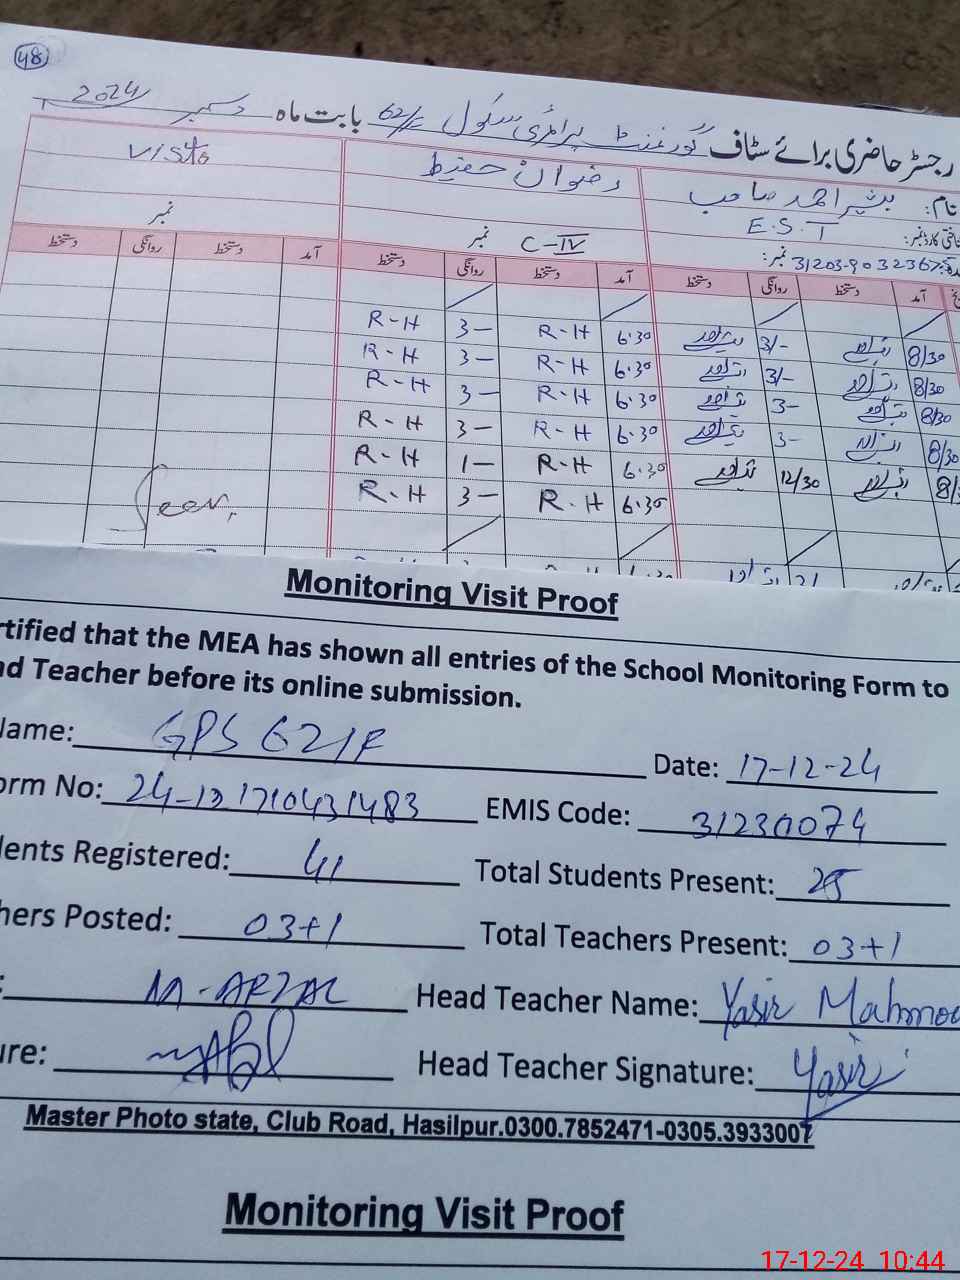 48
رجسٹر حاضری برائے سٹاف گورنمنٹ پرائمری سکول 62/F بابت ماہ دسمبر 2024
نام: بشیر احمد صاحب رضوان حفیظ Visto
E.S.T
شناختی کارڈ نمبر: C-IV نمبر نمبر
نمبر: 31203-9032367-5
آمد دستخط روانگی دستخط آمد دستخط روانگی دستخط آمد دستخط روانگی دستخط
8/30 3/- 6.30 R-H 3- R-H
8/30 3/- 6.30 R-H 3- R-H
8/30 3- 6.30 R-H 3- R-H
8/30 3- 6.30 R-H 3- R-H
12/30 6.30 R-H 1- R-H
6.30 R-H 3- R-H
Seen,
Monitoring Visit Proof
rtified that the MEA has shown all entries of the School Monitoring Form to
ad Teacher before its online submission.
Name: GPS 62/F Date: 17-12-24
orm No: 24-121710431483 EMIS Code: 31230074
dents Registered: 41 Total Students Present: 25
hers Posted: 03+1 Total Teachers Present: 03+1
M-AFZAL Head Teacher Name: Yasir Mahmoo
ure: Head Teacher Signature: Yasir
Master Photo state, Club Road, Hasilpur.0300.7852471-0305.3933007
Monitoring Visit Proof
17-12-24 10:44